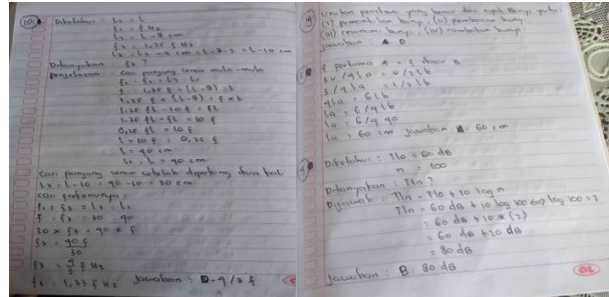 Diketahui : L1 = L
f1 = f Hz
L2 = L - 8 cm
f2 = 1,25 f Hz
L3 = L - 8 - 2 = L - 10 cm
Ditanyakan : f3 ?
Penjelasan : cari panjang senar mula-mula
f1 : f2 = L2 : L1
f : 1,25 f = (L-8) : L
1,25 f × (L-8) = f × L
1,25 fL - 10 f = fL
1,25 fL - fL = 10 f
0,25 fL = 10 f
L = 10 f : 0,25 f
L = 40 cm
L1 = L = 40 cm
Cari panjang senar setelah dipotong dua kali
L3 = L - 10 = 40 - 10 = 30 cm
cari frekuensinya :
f1 : f3 = L3 : L1
f : f3 = 30 : 40
30 × f3 = 40 × f
f3 = 40 f
30
f3 = 4/3 f Hz
f3 = 1,33 f Hz Jawaban : D. 4/3 f
Urutan peristiwa yang benar dari
(i) pemantulan bunyi, (ii) pembiasan bunyi,
(iii) resonansi bunyi, (iv) rambatan bunyi.
Jawaban : D
f pertama A = f dasar B
3v/4la = v/2lb
3/4la = 1/2lb
4la = 6lb
la = 6/4lb
la = 6/4 40
la = 60 cm Jawaban 60 cm
Diketahui : TI0 = 60 dB
n = 100
Ditanyakan : TIn ?
Dijawab : TIn = TI0 + 10 log n
TIn = 60 dB + 10 log 100 log 100 = 2
= 60 dB + 10 (2)
= 60 dB + 20 dB
= 80 dB
Jawaban : B. 80 dB